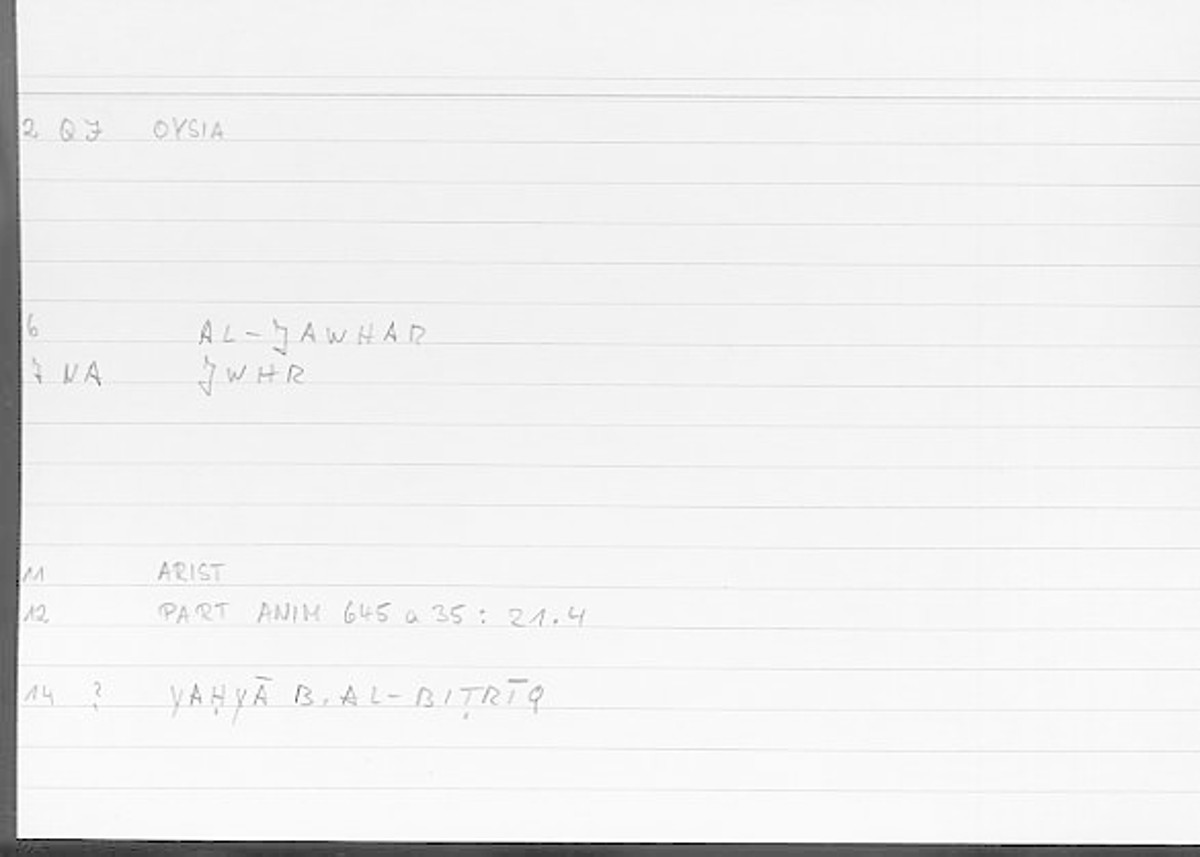 2 QJ OYSIA
6 AL-JAWHAR
7 NA JWHR
11 ARIST
12 PART ANIM 645 a 35: 21.4
14 ? YAḤYĀ B. AL-BIṬRĪQ